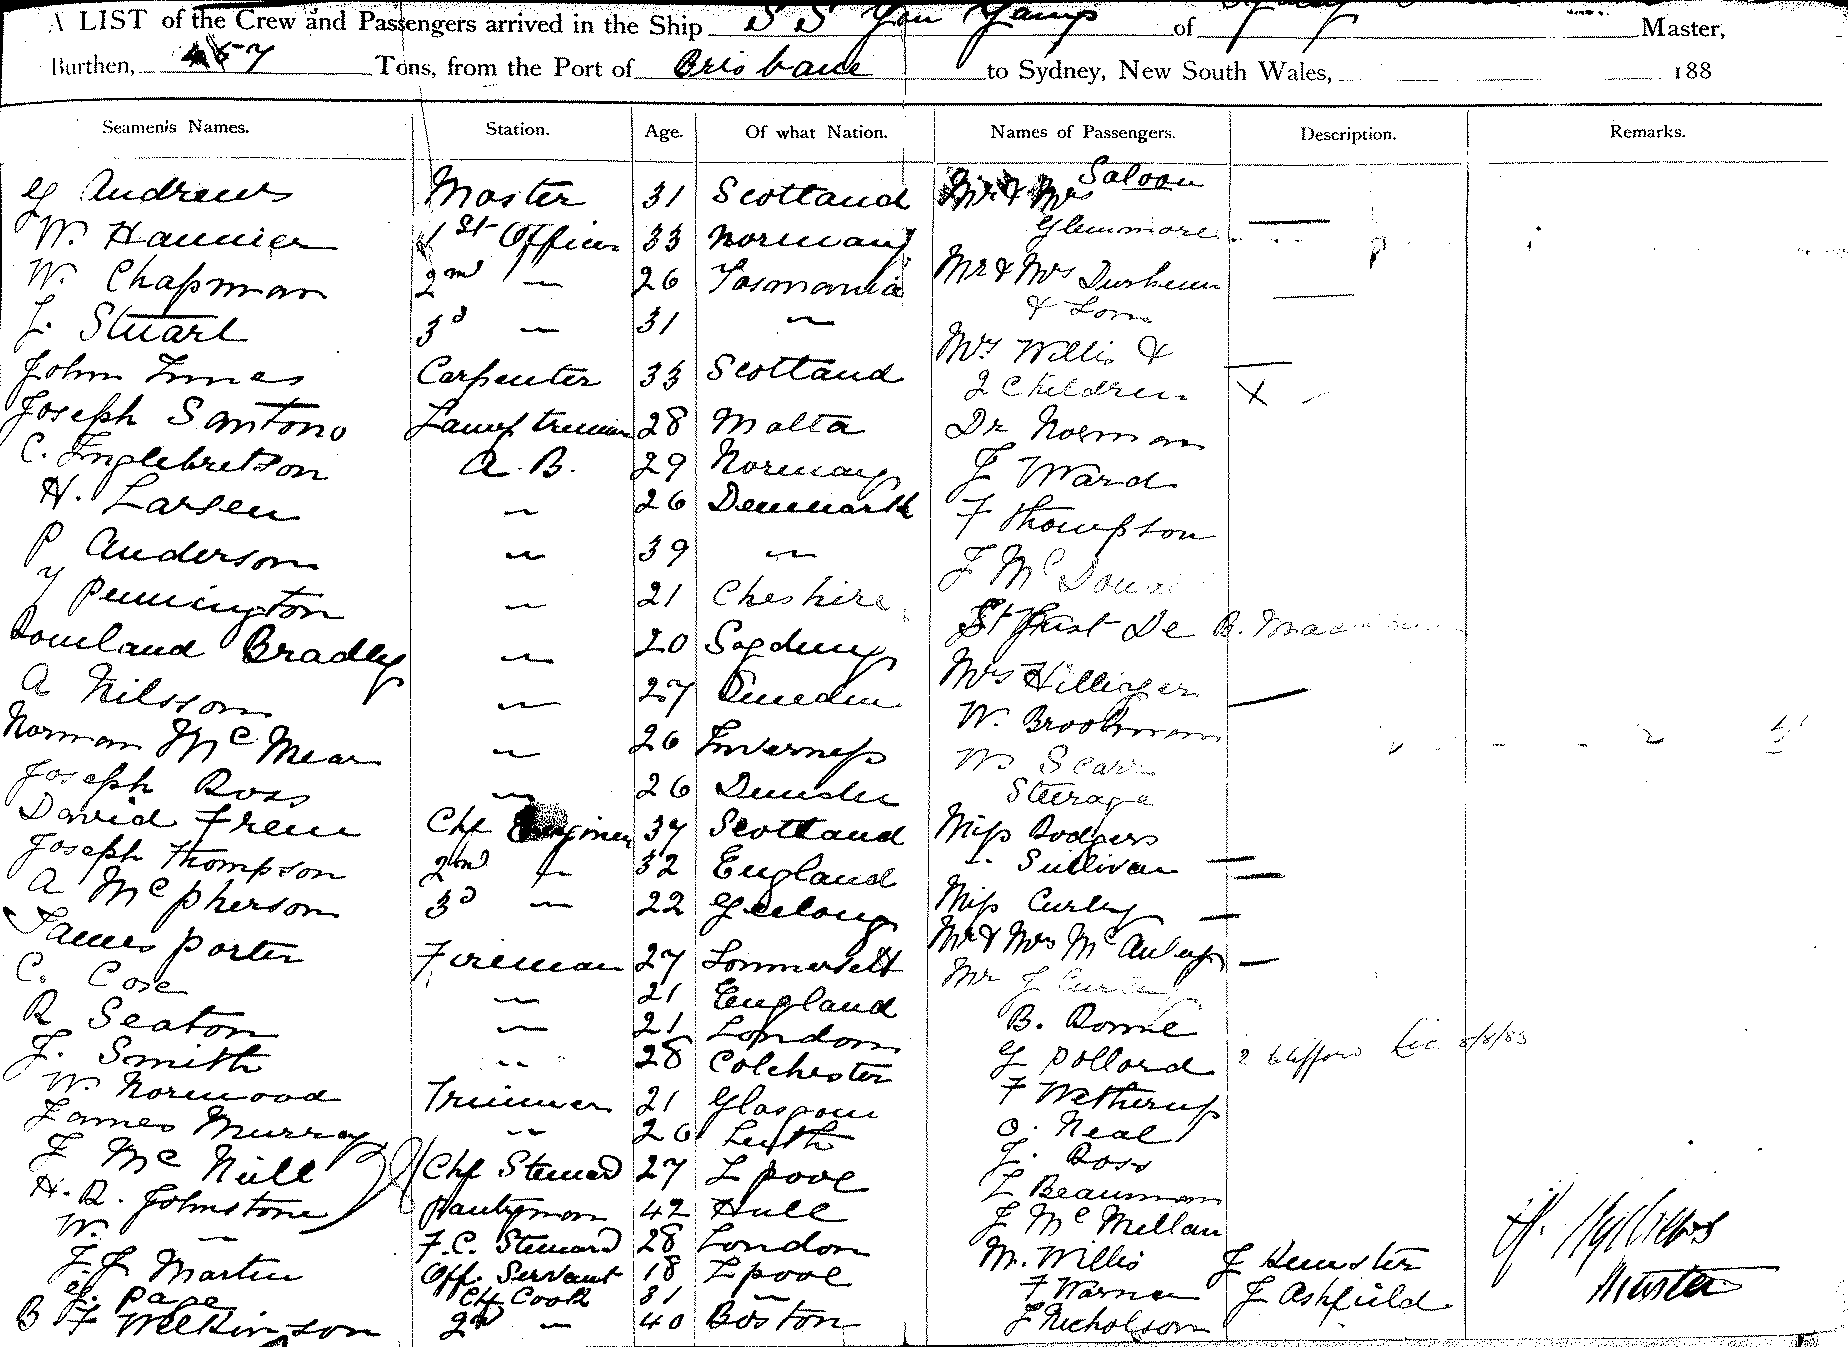 A LIST of the Crew and Passengers arrived in the Ship S S You Yangs of Sydney Master,
Burthen, 457 Tons, from the Port of Brisbane to Sydney, New South Wales, 188
Seamen's Names. Station. Age. Of what Nation. Names of Passengers. Description. Remarks.
Saloon
G Andrews Master 31 Scotland Mr & Mrs
W. Hannier 1st Officer 33 Norway Glenmore —
W. Chapman 2nd — 26 Tasmania Mr & Mrs Durham —
J. Stuart 3d — 31 — & Son
John Innes Carpenter 33 Scotland Mrs Willis & —
2 Children X
Joseph Santono Lamp trimmer 28 Malta Dr Norman
C. Inglebretson A. B. 29 Norway J Ward
H. Larsen — 26 Denmark F Thompson
P Anderson — 39 — J Mc
Y Pennington — 21 Cheshire St Just De B.
Rowland Bradley — 20 Mrs Hillinger —
A Nilsson — 27 Sweden W. Brookman
Norman Mc Mear — 26 Inverness W Scarr
Joseph Ross — 26 Dundee Steerage
David Frew Chf Engineer 37 Scotland Miss Rodgers
Joseph Thompson 2nd — 32 England — Sullivan —
A McPherson 3d — 22 Geelong Miss Curley —
James Porter Fireman 27 Sommersett Mr & Mrs Mc Auley —
C. Cose — 21 England Mr J Curley
R Seaton — 21 London B. Bonne
J. Smith — 28 Colchester G Pollard 2 8/8/83
W. Norwood Trimmer 21 Glasgow F Wetherup
James Murray — 26 Leith O. Neal
J Mc Neill Chf Steward 27 L pool J. Ross
H. R. Johnstone Pantryman 42 Hull L Beauman
W. — F.C. Steward 28 London J Mc Mellan
J. J Martin Off. Servant 18 L pool M. Willis J Hemster
G. Page Chf Cook 31 — F Warner J Ashfield
B F Wilkinson 2d — 40 Boston J Nicholson
Master